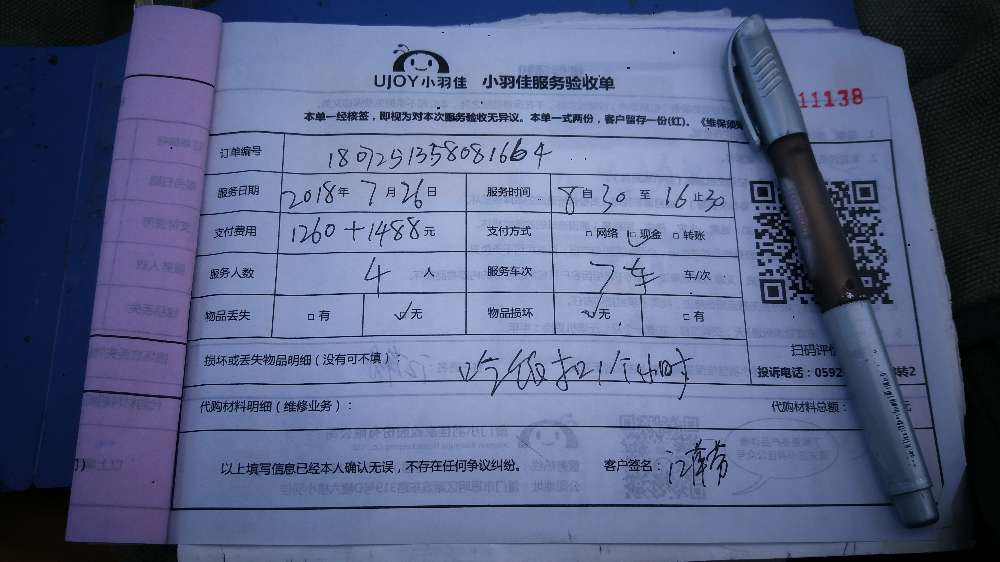 UJOY小羽佳 小羽佳服务验收单
11138
本单一经核签，即视为对本次服务验收无异议。本单一式两份，客户留存一份(红)。《维保须知
订单编号 1807251358081664
服务日期 2018年7月26日 服务时间 8自30至16止30
支付费用 1260+1488元 支付方式 □网络 □现金 □转账
服务人数 4人 服务车次 7车 车/次
物品丢失 □有 □无 物品损坏 □无 □有
扫码评价
损坏或丢失物品明细（没有可不填）： 吃饭扣1个小时
投诉电话：0592 转2
代购材料明细（维修业务）： 代购材料总额：
以上填写信息已经本人确认无误，不存在任何争议纠纷。 客户签名：